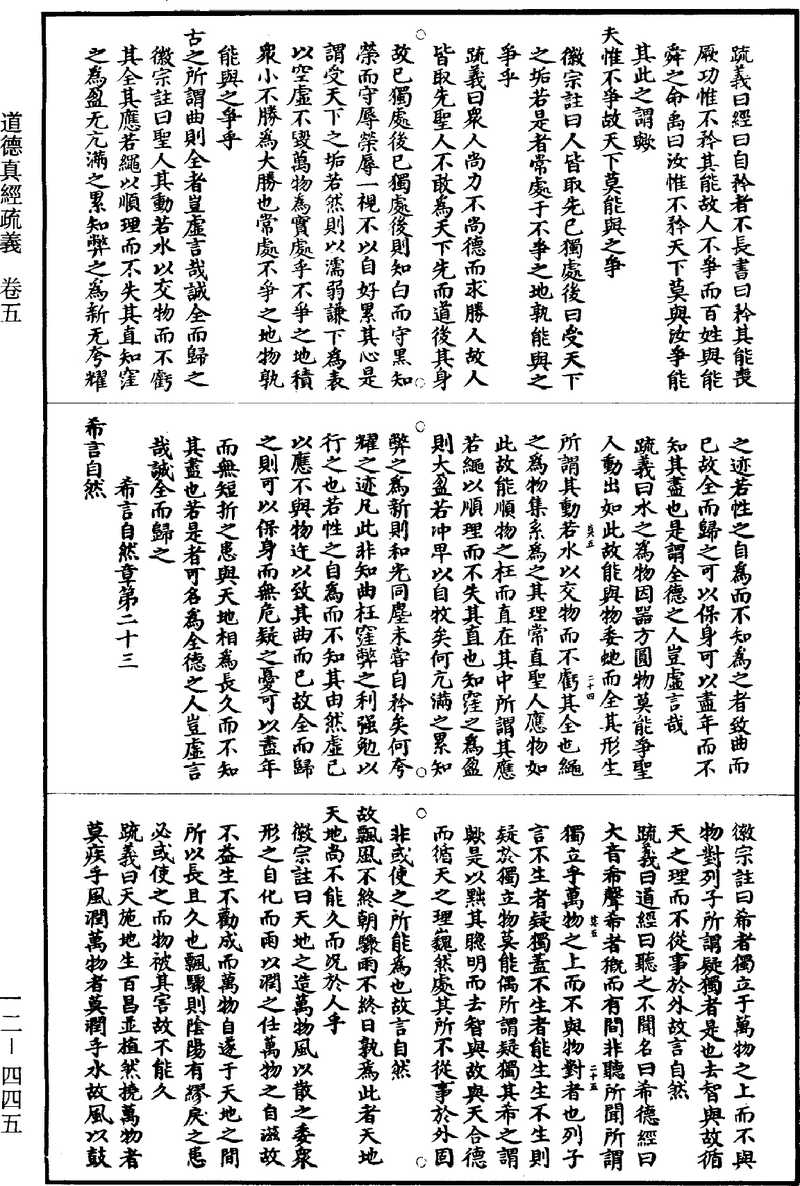 疏義曰經曰自矜者不長書曰矜其能喪
厥功惟不矜其能故人不爭而百姓與能
舜之命禹曰汝惟不矜天下莫與汝爭能
其此之謂歟
夫惟不爭故天下莫能與之爭
徽宗註曰人皆取先已獨處後曰受天下
之垢若是者常處于不爭之地孰能與之
爭乎
疏義曰衆人尚力不尚德而求勝人故人
皆取先聖人不敢為天下先而道後其身
故已獨處後已獨處後則知白而守黑知
榮而守辱榮辱一視不以自好累其心是
謂受天下之垢若然則以濡弱謙下為表
以空虛不毀萬物為實處乎不爭之地積
衆小不勝為大勝也常處不爭之地物孰
能與之爭乎
古之所謂曲則全者豈虛言哉誠全而歸之
徽宗註曰聖人其動若水以交物而不虧
其全其應若繩以順理而不失其直知窪
之為盈无亢滿之累知弊之為新无夸耀
之迹若性之自為而不知為之者致曲而
已故全而歸之可以保身可以盡年而不
知其盡也是謂全德之人豈虛言哉
疏義曰水之為物因器方圓物莫能爭聖
人動出如此故能與物委蛇而全其形生
所謂其動若水以交物而不虧其全也繩
之為物集系為之其理常直聖人應物如
此故能順物之枉而直在其中所謂其應
若繩以順理而不失其直也知窪之為盈
則大盈若冲卑以自牧矣何亢滿之累知
弊之為新則和光同塵未嘗自矜矣何夸
耀之迹凡此非知曲枉窪弊之利强勉以
行之也若性之自為而不知其由然虛已
以應不與物迕以致其曲而已故全而歸
之則可以保身而無危疑之憂可以盡年
而無短折之患與天地相為長久而不知
其盡也若是者可名為全德之人豈虛言
哉誠全而歸之
希言自然章第二十三
希言自然
徽宗註曰希者獨立于萬物之上而不與
物對列子所謂疑獨者是也去智與故循
天之理而不從事於外故言自然
疏義曰道經曰聽之不聞名曰希德經曰
大音希聲希者槪而有間非聽所聞所謂
獨立乎萬物之上而不與物對者也列子
言不生者疑獨蓋不生者能生生不生則
疑於獨立物莫能偶所謂疑獨其希之謂
歟是以黜其聰明而去智與故與天合德
而循天之理巍然處其所不從事於外固
非或使之所能為也故言自然
故飄風不終朝驟雨不終日孰為此者天地
天地尚不能久而況於人乎
徽宗註曰天地之造萬物風以散之委衆
形之自化而雨以潤之任萬物之自滋故
不益生不勸成而萬物自遂于天地之間
所以長且久也飄驟則陰陽有繆戾之患
必或使之而物被其害故不能久
疏義曰天施地生百昌並植然撓萬物者
莫疾乎風潤萬物者莫潤乎水故風以鼓
二十四
二十五
道德真經疏義 卷五
一二－四四五